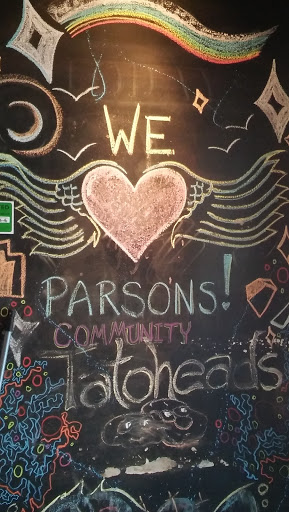 WE
PARSONS!
COMMUNITY
Tatoheads